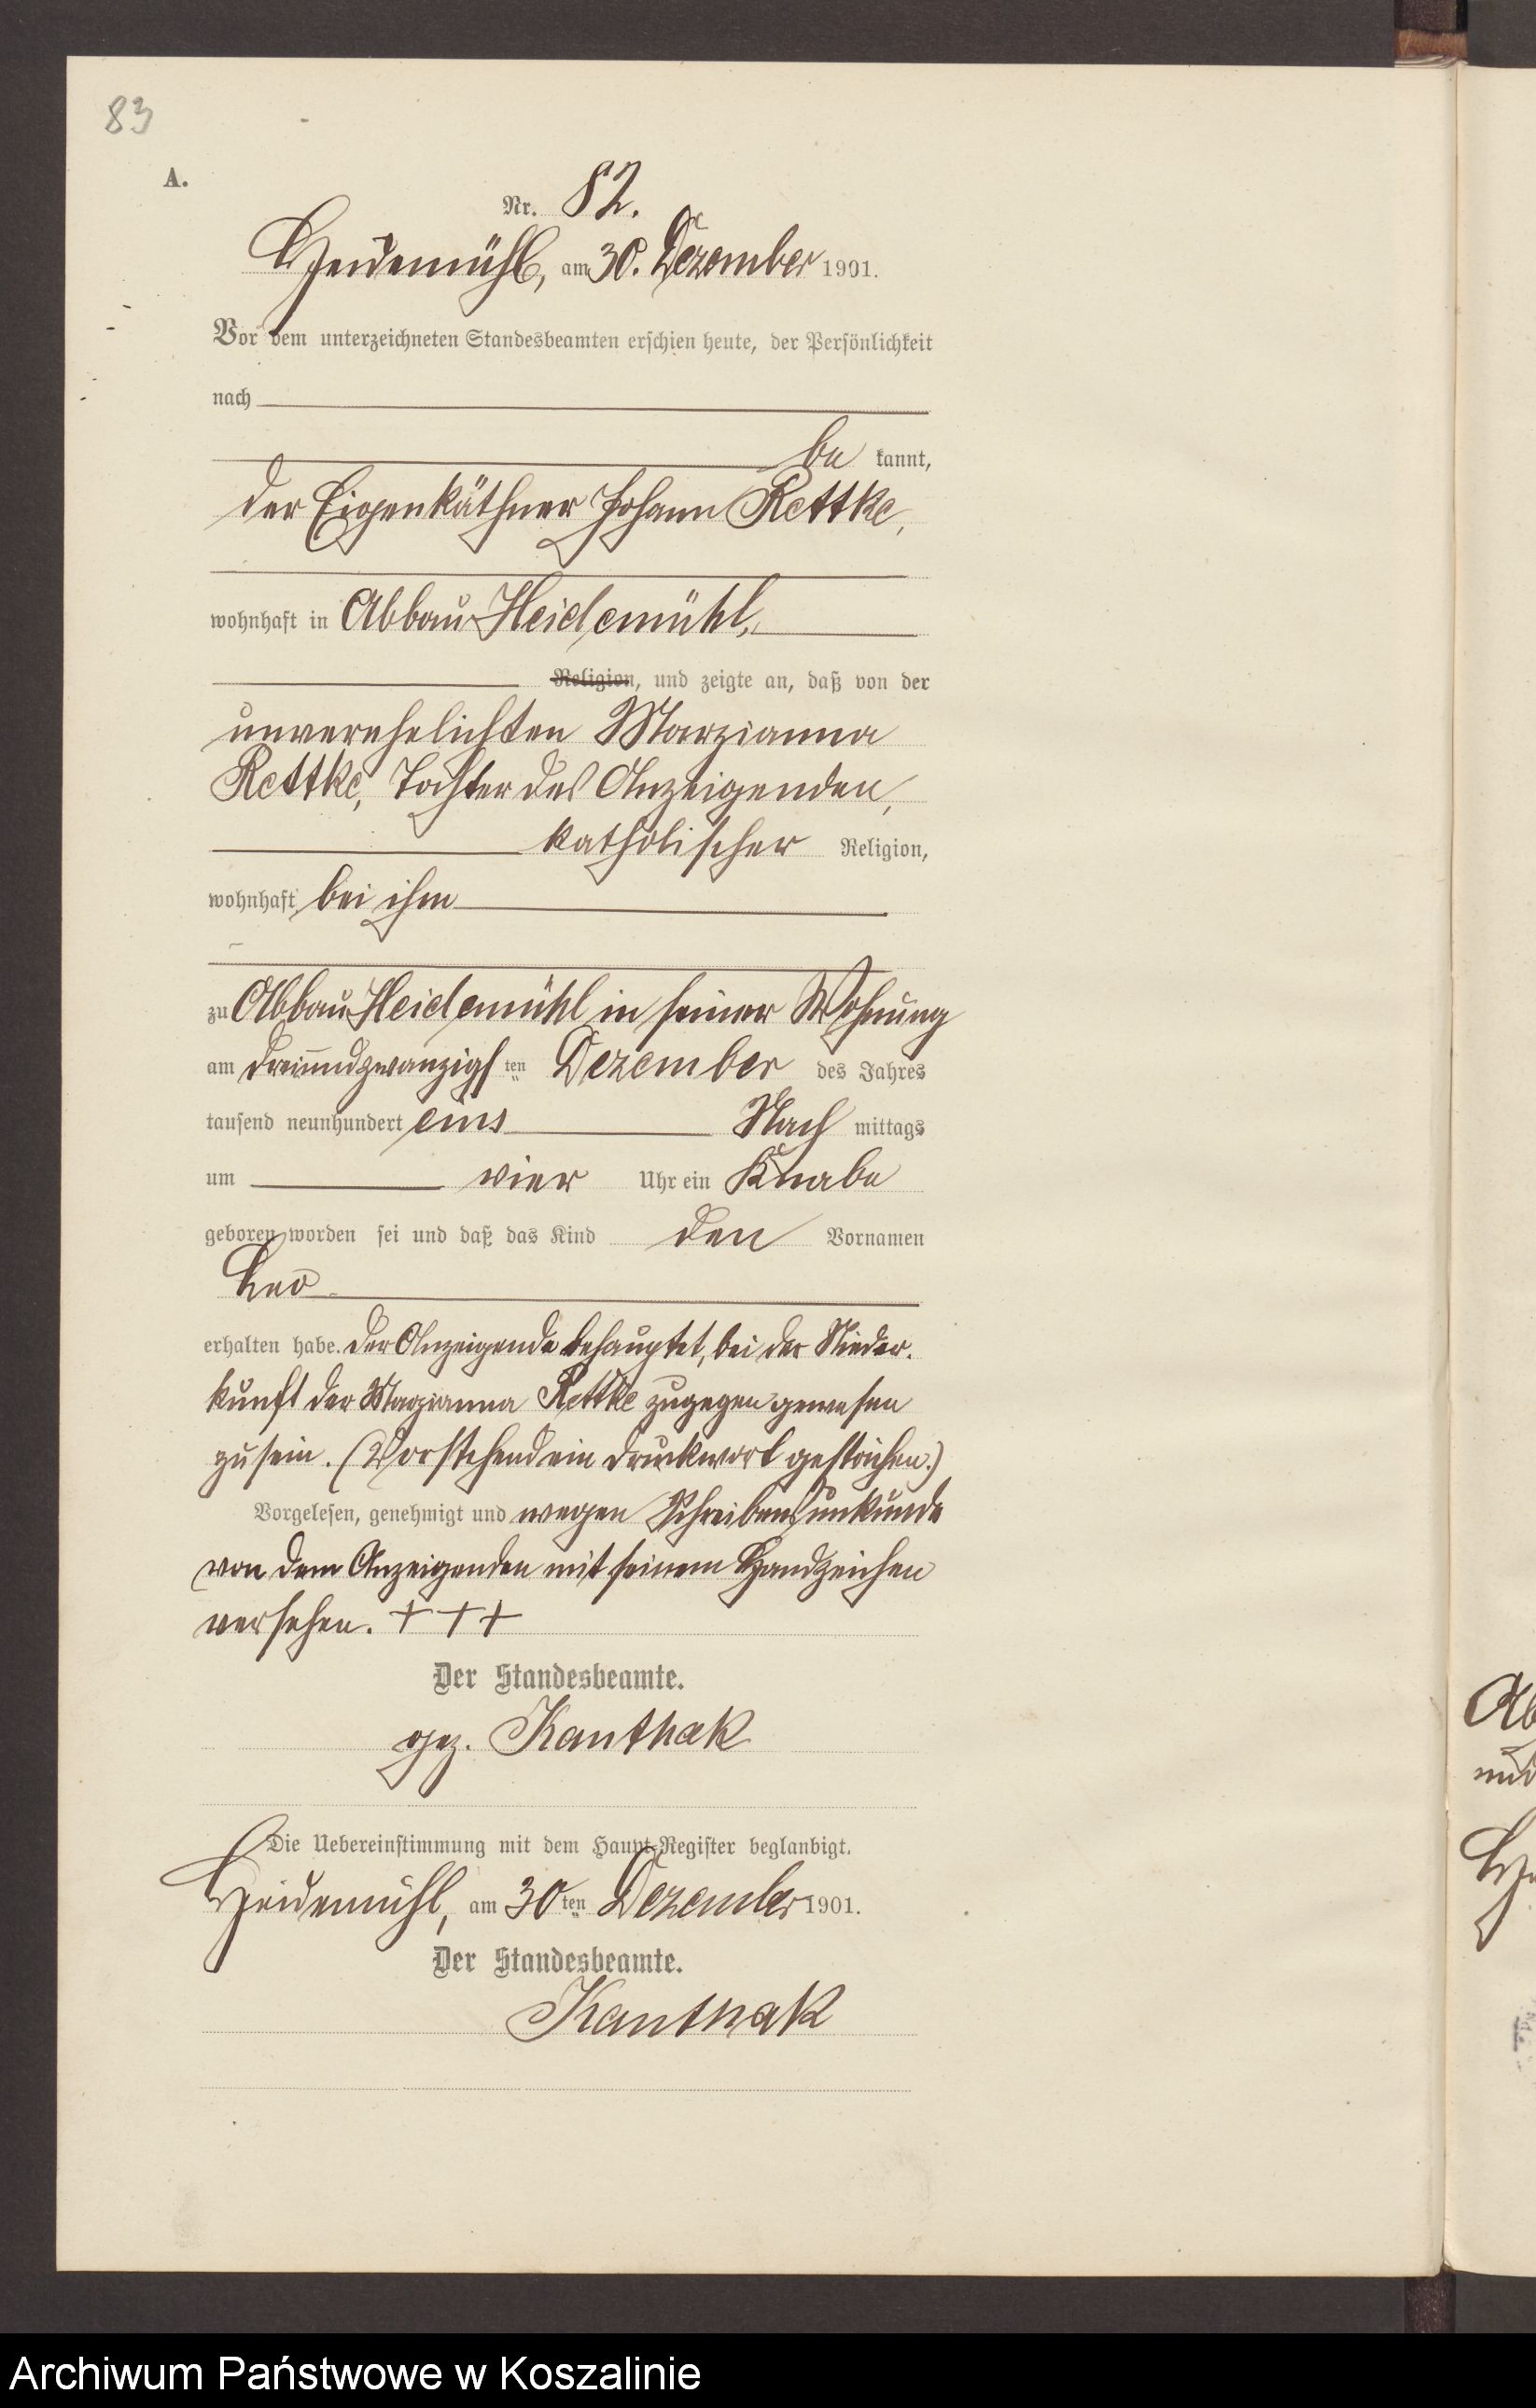 83
A.
Nr. 82.
Heidemühl, am 30. Dezember 1901.
Vor dem unterzeichneten Standesbeamten erschien heute, der Persönlichkeit
nach
be kannt,
der Eigenkäthner Johann Rettke,
wohnhaft in Abbau Heidemühl,
Religion, und zeigte an, daß von der
unverehelichten Marzianna
Rettke, Tochter des Anzeigenden,
katholischer Religion,
wohnhaft bei ihm
zu Abbau Heidemühl in seiner Wohnung
am dreiundzwanzigsten Dezember des Jahres
tausend neunhundert eins Nach mittags
um vier Uhr ein Knabe
geboren worden sei und daß das Kind den Vornamen
Leo
erhalten habe. Der Anzeigende behauptet, bei der Nieder-
kunft der Marzianna Rettke zugegen gewesen
zu sein. (Vorstehend ein Druckwort gestrichen.)
Vorgelesen, genehmigt und wegen Schreibensunkunde
von dem Anzeigenden mit seinem Handzeichen
versehen. +++
Der Standesbeamte.
gez. Kanthak
Die Uebereinstimmung mit dem Haupt-Register beglaubigt.
Heidemühl, am 30ten Dezember 1901.
Der Standesbeamte.
Kanthak
Archiwum Państwowe w Koszalinie